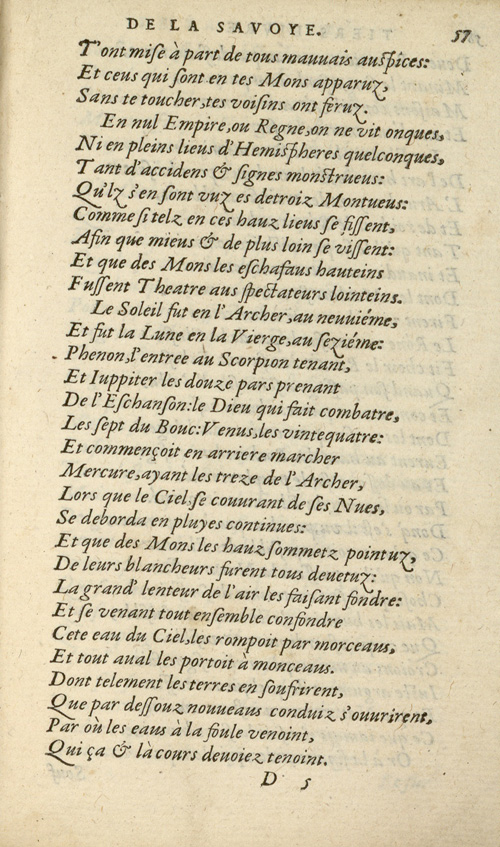 DE LA SAVOYE. 57
T'ont mise à part de tous mauuais auspices:
Et ceus qui sont en tes Mons apparuz,
Sans te toucher, tes voisins ont feruz.
En nul Empire, ou Regne, on ne vit onques,
Ni en pleins lieus d'Hemispheres quelconques,
Tant d'accidens & signes monstrueus:
Qu'lz s'en sont vuz es detroiz Montueus:
Comme si telz en ces hauz lieus se fissent,
Afin que mieus & de plus loin se vissent:
Et que des Mons les eschafaus hauteins
Fussent Theatre aus spectateurs lointeins.
Le Soleil fut en l'Archer, au neuuiéme,
Et fut la Lune en la Vierge, au seziéme:
Phenon, l'entree au Scorpion tenant,
Et Iuppiter les douze pars prenant
De l'Eschanson: le Dieu qui fait combatre,
Les sept du Bouc: Venus, les vintequatre:
Et commençoit en arriere marcher
Mercure, ayant les treze de l'Archer,
Lors que le Ciel, se couurant de ses Nues,
Se deborda en pluyes continues:
Et que des Mons les hauz sommetz pointuz,
De leurs blancheurs furent tous deuetuz:
La grand' lenteur de l'air les faisant fondre:
Et se venant tout ensemble confondre
Cete eau du Ciel, les rompoit par morceaus,
Et tout aual les portoit à monceaus.
Dont telement les terres en soufrirent,
Que par dessouz nouueaus conduiz s'ouurirent,
Par où les eaus à la foule venoint,
Qui ça & là cours deuoiez tenoint.
D 5